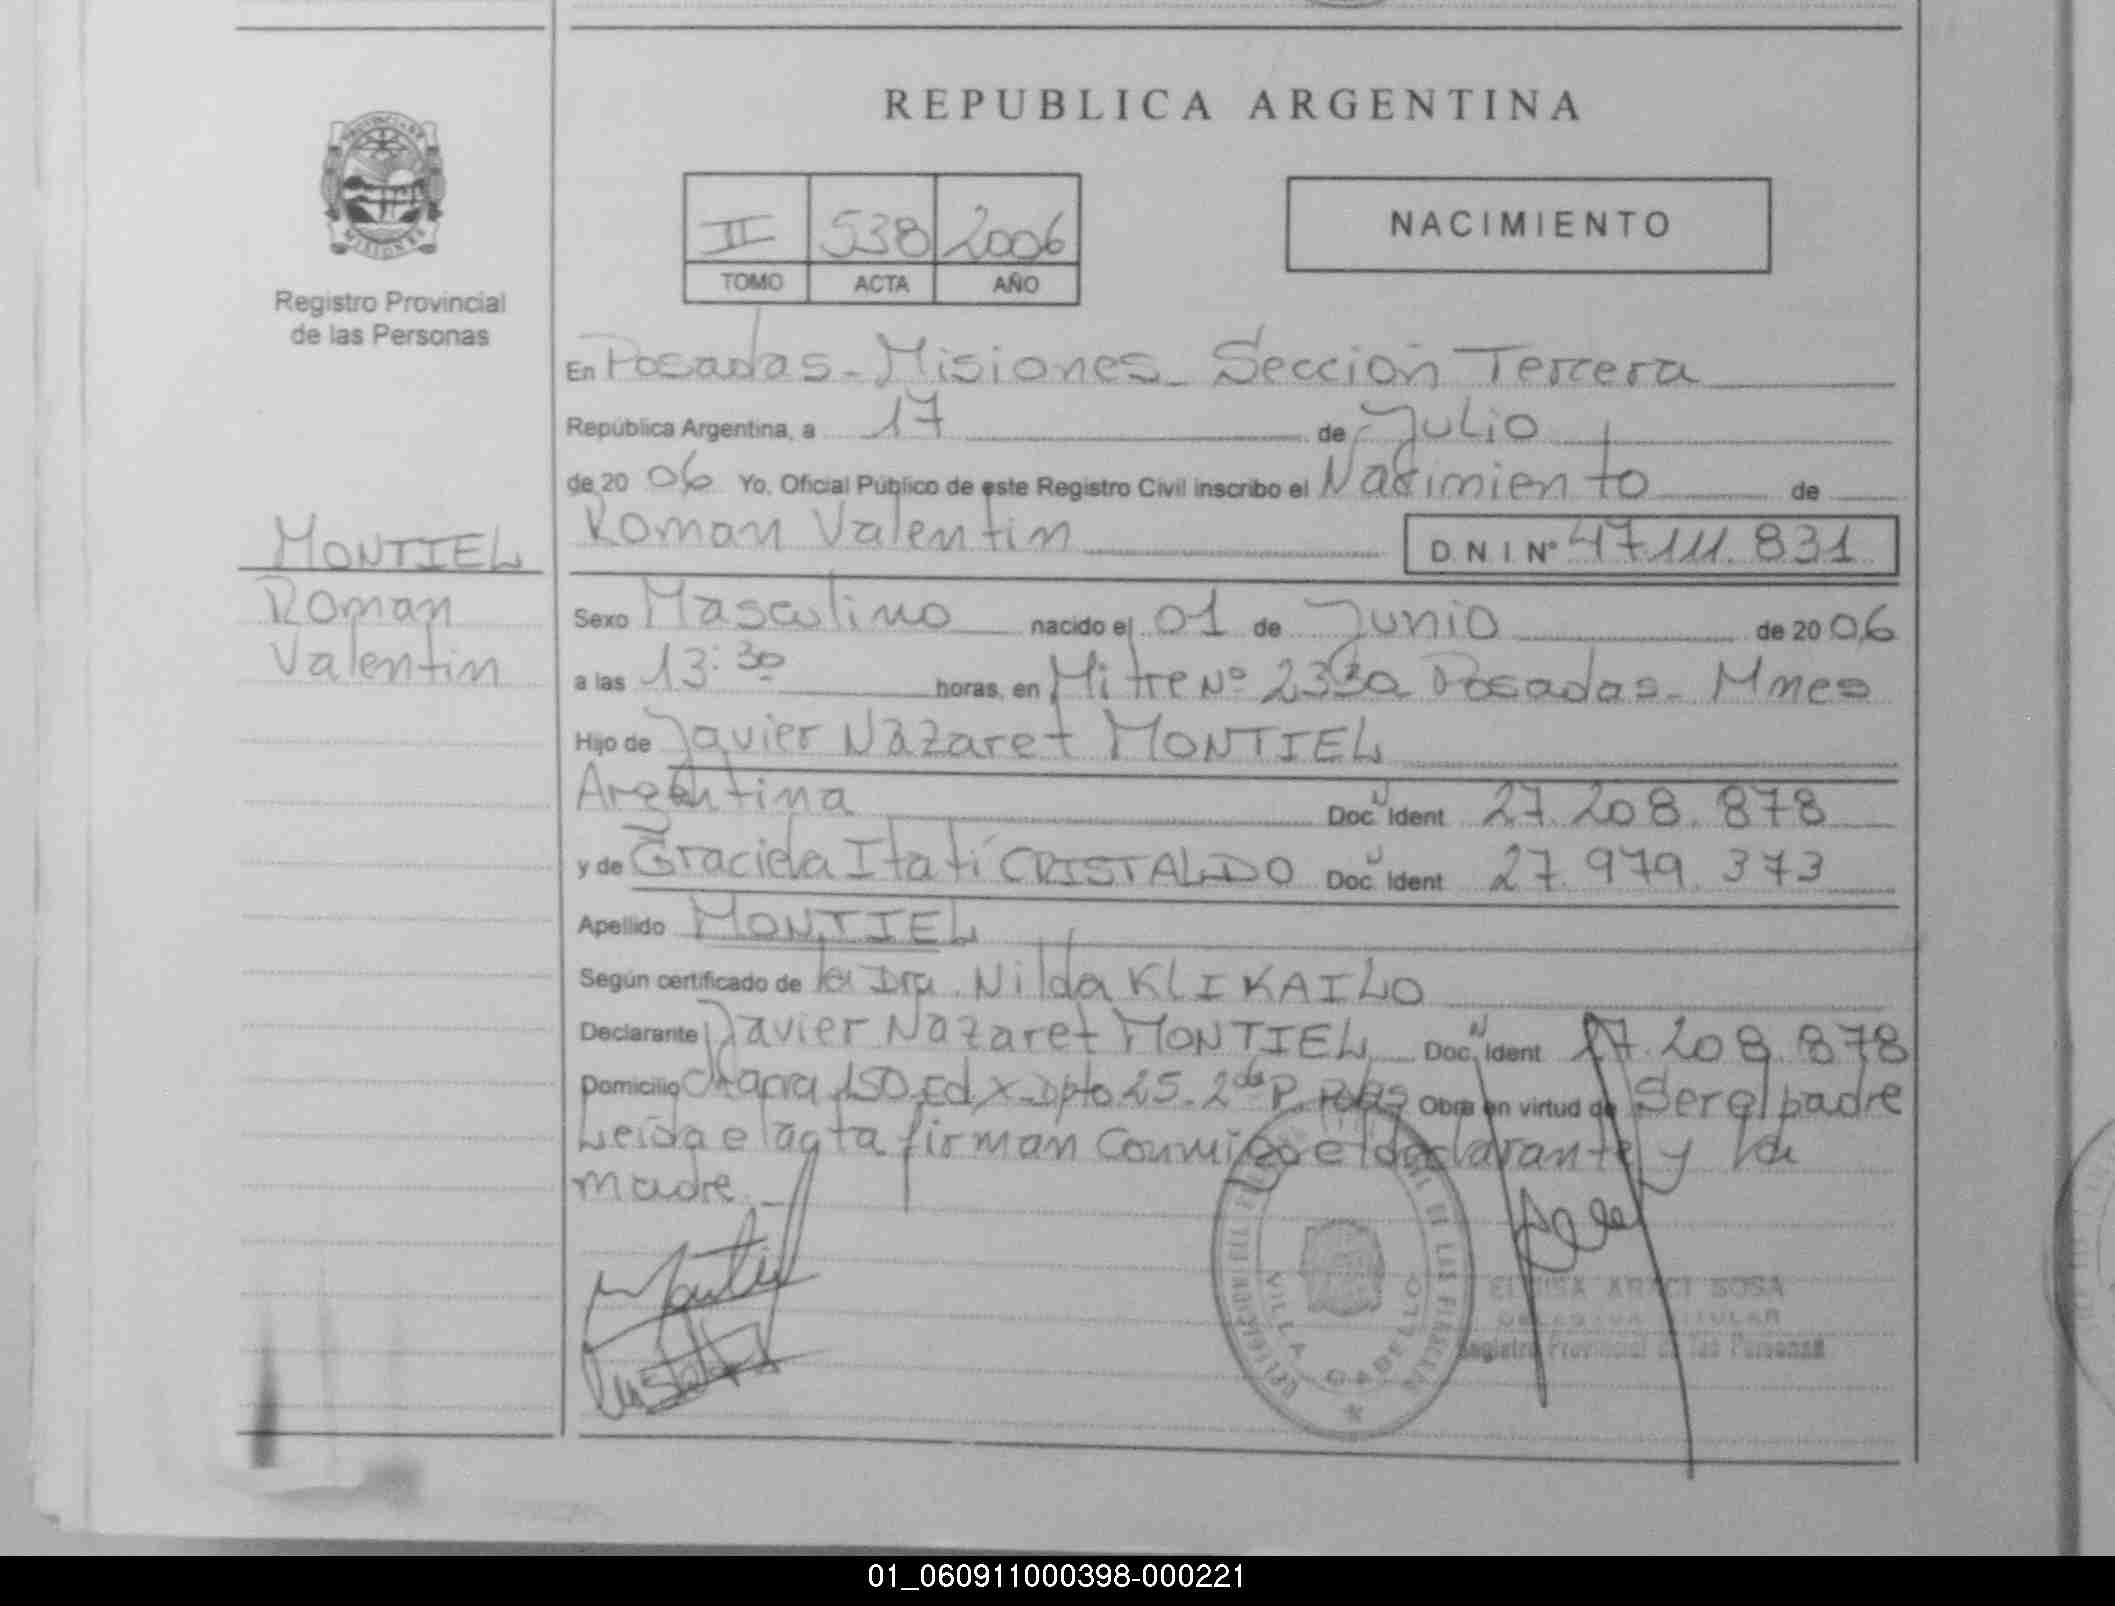 REPUBLICA ARGENTINA
PROVINCIA DE
MISIONES
Registro Provincial
de las Personas
II 538 2006
TOMO ACTA AÑO
NACIMIENTO
En Posadas - Misiones - Sección Tercera
República Argentina, a 17 de Julio
de 20 06 Yo, Oficial Público de este Registro Civil inscribo el Nacimiento de
Roman Valentin D.N.I. Nº 47.111.831
MONTIEL
Roman
Valentin
Sexo Masculino nacido el 01 de Junio de 20 06
a las 13:30 horas, en Mitre Nº 2330 Posadas - Mnes
Hijo de Javier Nazaret MONTIEL
Argentina Doc. Ident 27.208.878
y de Graciela Itatí CRISTALDO Doc. Ident 27.979.373
Apellido MONTIEL
Según certificado de la Dra. Nilda KLIKAILO
Declarante Javier Nazaret MONTIEL Doc. Ident 27.208.878
Domicilio Chacra 150 Ed X - Dpto 25 - 2do P. Pdas Obra en virtud de Ser el padre
Leida el acta firman conmigo el declarante y la
madre. -
Montiel
VILLA CABELLO
ELOISA ARACI SOSA
DELEGADA TITULAR
Registro Provincial de las Personas
01_060911000398-000221